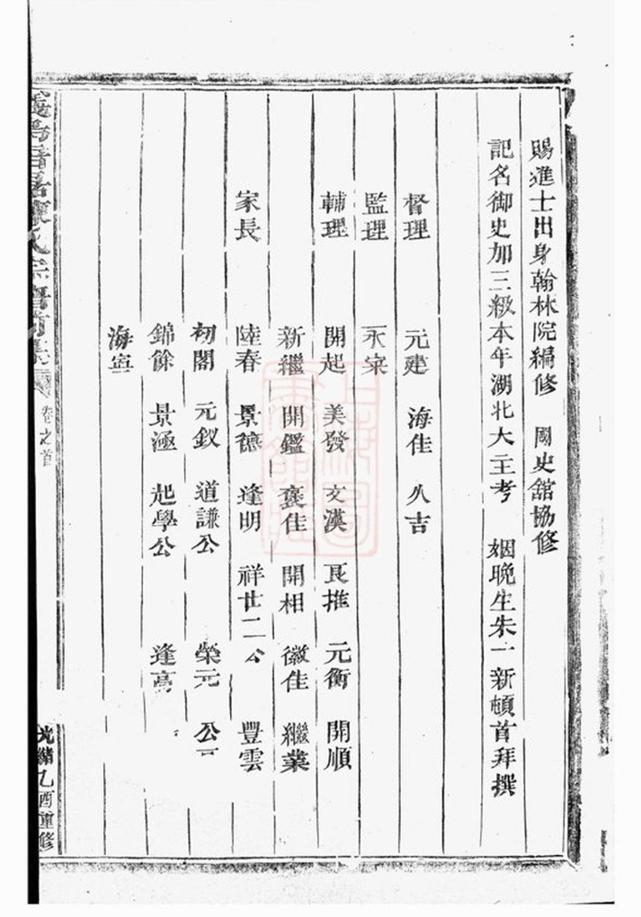 賜進士出身翰林院編修　國史舘協修
記名御史加三級本年湖北大主考　姻晚生朱一新頓首拜撰
督理　元建　海佳　久吉
監理　永宋
輔理　開起　美發　文漢　良推　元衡　開順
新繼　開鑑　褒佳　開相　徽佳　繼葉
家長　陸春　景德　逢明　祥世二公　豐雲
初閣　元釵　道謙公　榮元　公
錦餘　景涵　起學公　逢高
海寧
氏宗譜
卷之首
光緒乙酉重修